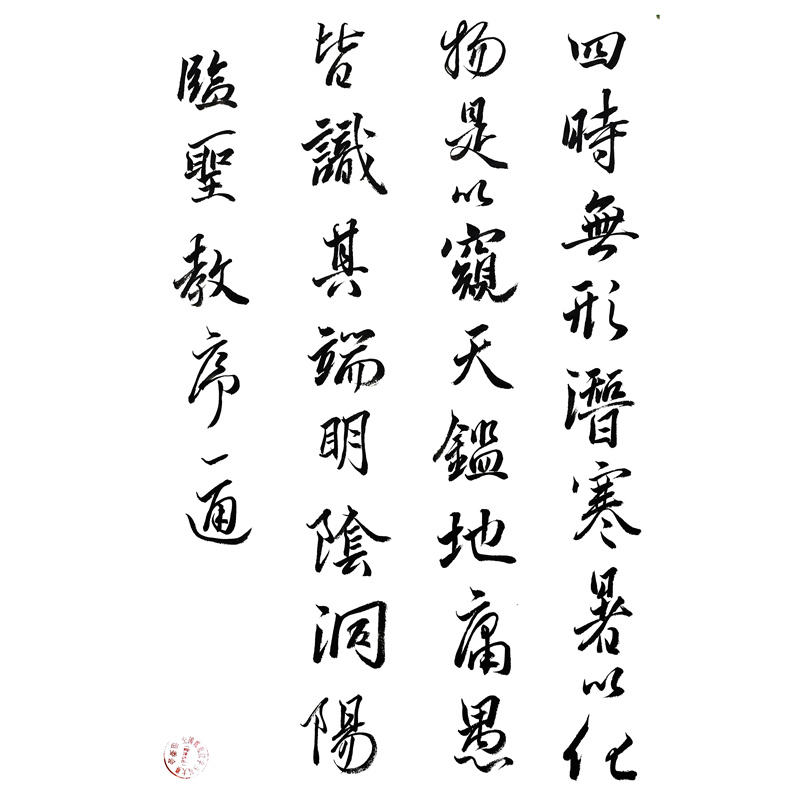 四時無形潛寒暑以化
物是以窺天鑑地庸愚
皆識其端明陰洞陽
臨聖教序一通